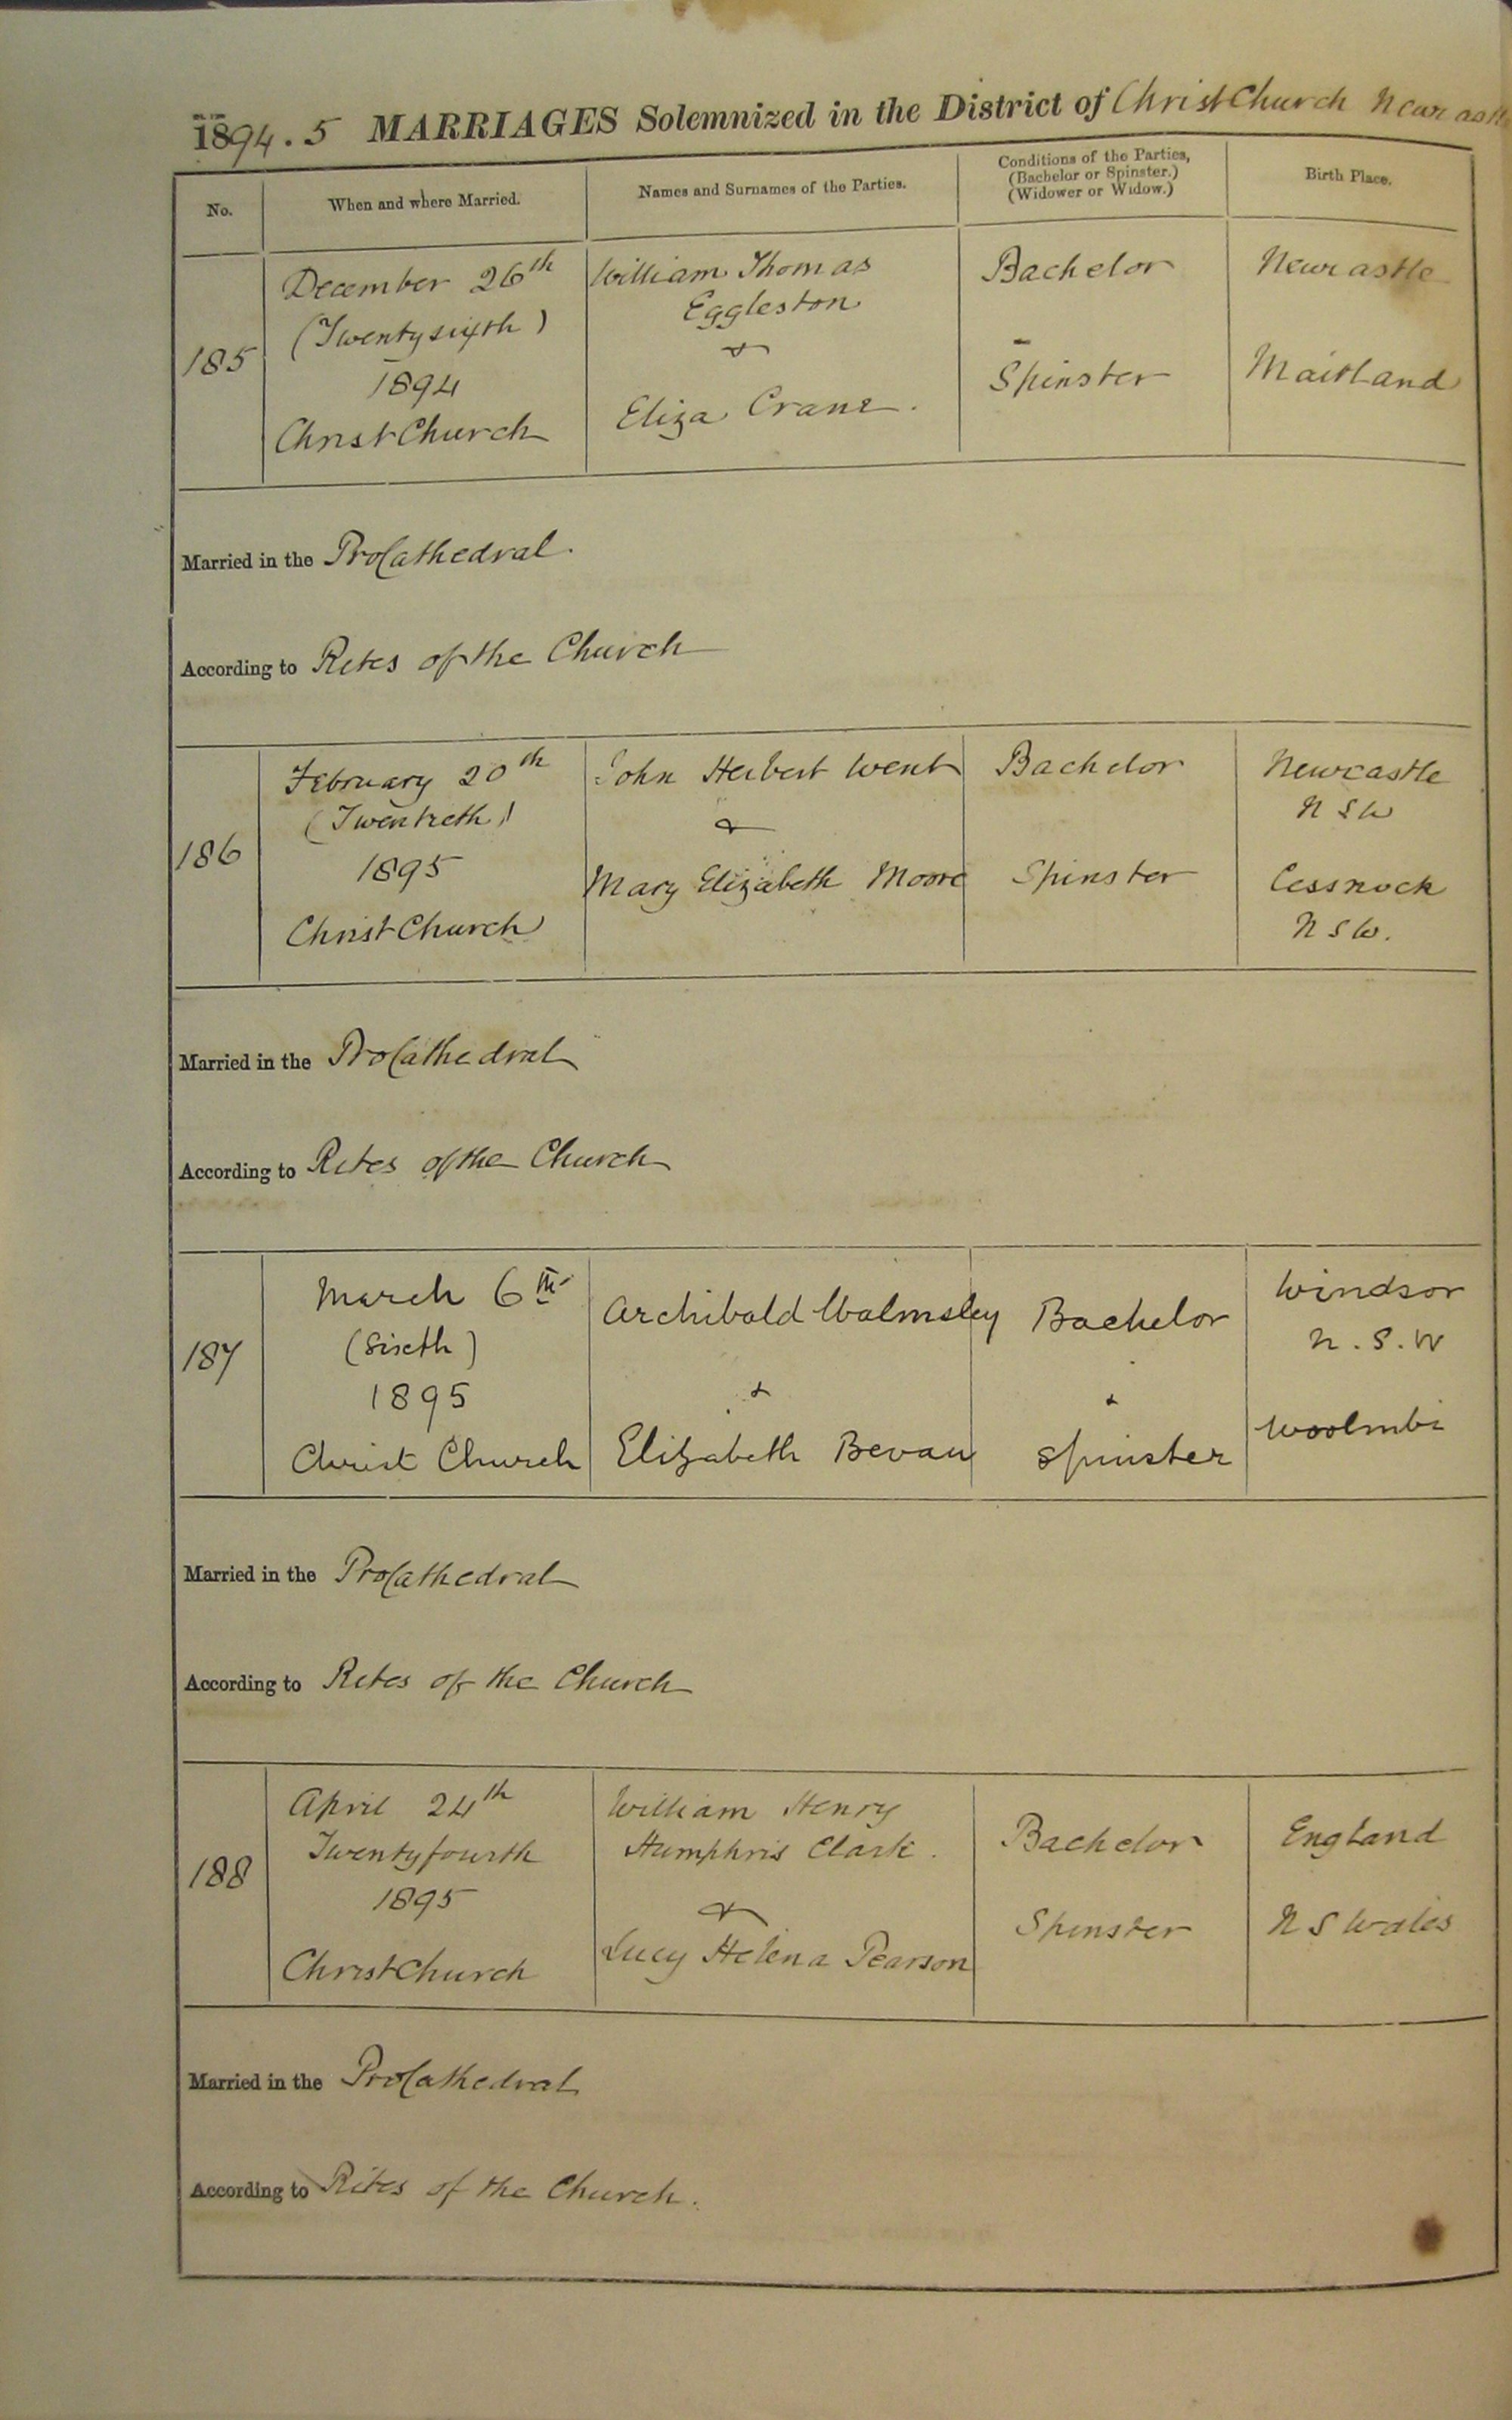 1894.5 MARRIAGES Solemnized in the District of Christ Church Newcastle
No.
When and where Married.
Names and Surnames of the Parties.
Conditions of the Parties,
(Bachelor or Spinster.)
(Widower or Widow.)
Birth Place.
185
December 26th
(Twentysixth)
1894
Christ Church
William Thomas
Eggleston
&
Eliza Crane.
Bachelor
Spinster
Newcastle
Maitland
Married in the ProCathedral.
According to Rites of the Church
186
February 20th
(Twentieth)
1895
Christ Church
John Herbert Went
&
Mary Elizabeth Moore
Bachelor
Spinster
Newcastle
N S W
Cessnock
N S W.
Married in the ProCathedral
According to Rites of the Church
187
March 6th
(Sixth)
1895
Christ Church
Archibald Walmsley
&
Elizabeth Bevan
Bachelor
&
Spinster
Windsor
N. S. W
Woolmbi
Married in the ProCathedral
According to Rites of the Church
188
April 24th
Twentyfourth
1895
Christ Church
William Henry
Humphris Clark.
&
Lucy Helena Pearson
Bachelor
Spinster
England
N S Wales
Married in the ProCathedral
According to Rites of the Church.